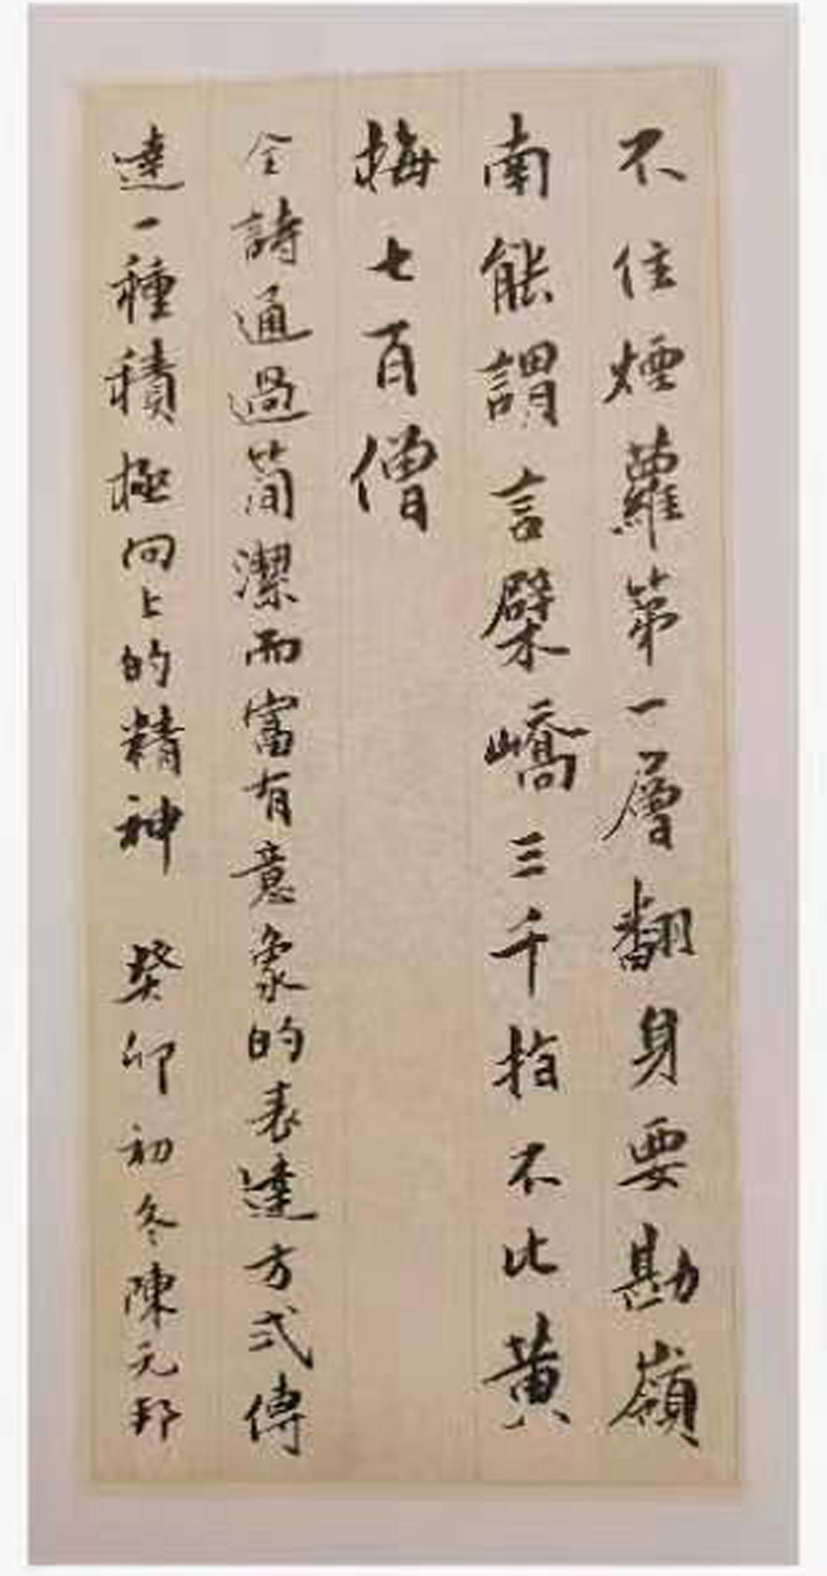 不住煙蘿第一層翻身要勘嶺
南能謂言檗嶠三千指不比黄
梅七百僧
全詩通過簡潔而富有意象的表達方式傳
達一種積極向上的精神 癸卯初冬陳元邦